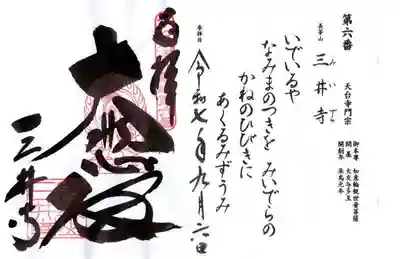 第六番
長等山 三井寺 天台寺門宗
みいでら
御本尊 如意輪観世音菩薩
開基 大友与多王
開創年 朱鳥元年
いでいるや
なみまのつきを みいでらの
かねのひびきに
あくるみずうみ
参拝日
令和七年九月六日
奉拝
大悲殿
三井寺